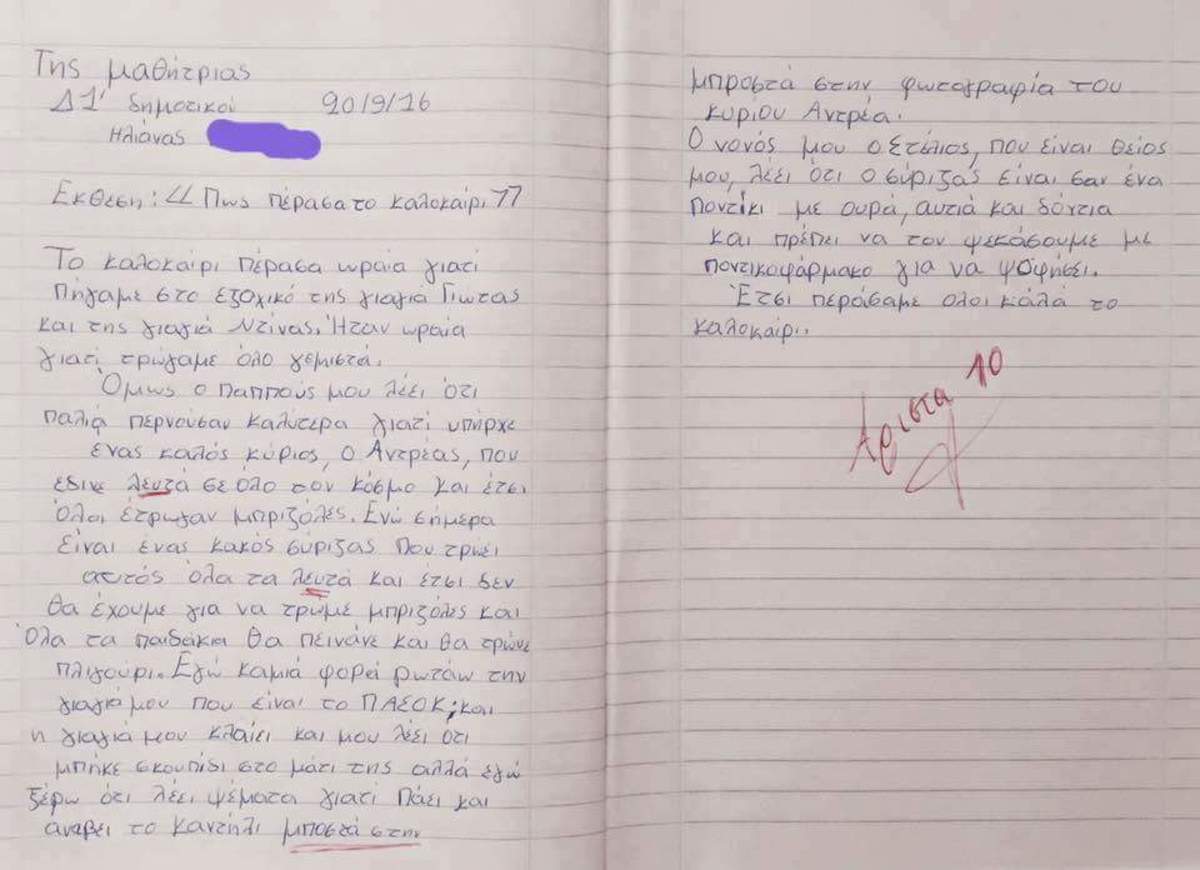 Της μαθήτριας
Δ1' δημοτικού 20/9/16
Ηλιάνας
Εκθεση: << Πως πέρασα το καλοκαίρι >>
Το καλοκαίρι πέρασα ωραία γιατί
πήγαμε στο εξοχικό της γιαγιά Γιωτας
και της γιαγιά Ντίνας. Ήταν ωραία
γιατί τρώγαμε όλο γεμιστά.
Όμως ο παππούς μου λέει ότι
παλιά περνούσαν καλύτερα γιατί υπήρχε
ένας καλός κύριος, ο Αντρέας, που
έδινε λευτά σε όλο τον κόσμο και έτσι
όλοι έτρωγαν μπριζόλες. Ενώ σήμερα
είναι ένας κακός σύριζας που τρώει
αυτός όλα τα λευτά και έτσι δεν
θα έχουμε για να τρώμε μπριζόλες και
όλα τα παιδάκια θα πεινάνε και θα τρώνε
πλιγούρι. Εγώ καμιά φορεί ρωτάω την
γιαγιά μου που είναι το ΠΑΣΟΚ; και
η γιαγιά μου κλαίει και μου λέει ότι
μπήκε σκουπίδι στο μάτι της αλλά εγώ
ξέρω ότι λέει ψέματα γιατί πάει και
αναβει το καντήλι μποστά στην
μπροστά στην φωτογραφία του
κυρίου Αντρέα.
Ο νονός μου ο Στέλιος, που είναι θείος
μου, λέει ότι ο σύριζας είναι σαν ένα
ποντίκι με ουρά, αυτιά και δόντια
και πρέπει να τον ψεκάσουμε με
ποντικοφάρμακο για να ψοφήσει.
Έτσι περάσαμε ολοι καλά το
καλοκαίρι.
Αριστα 10